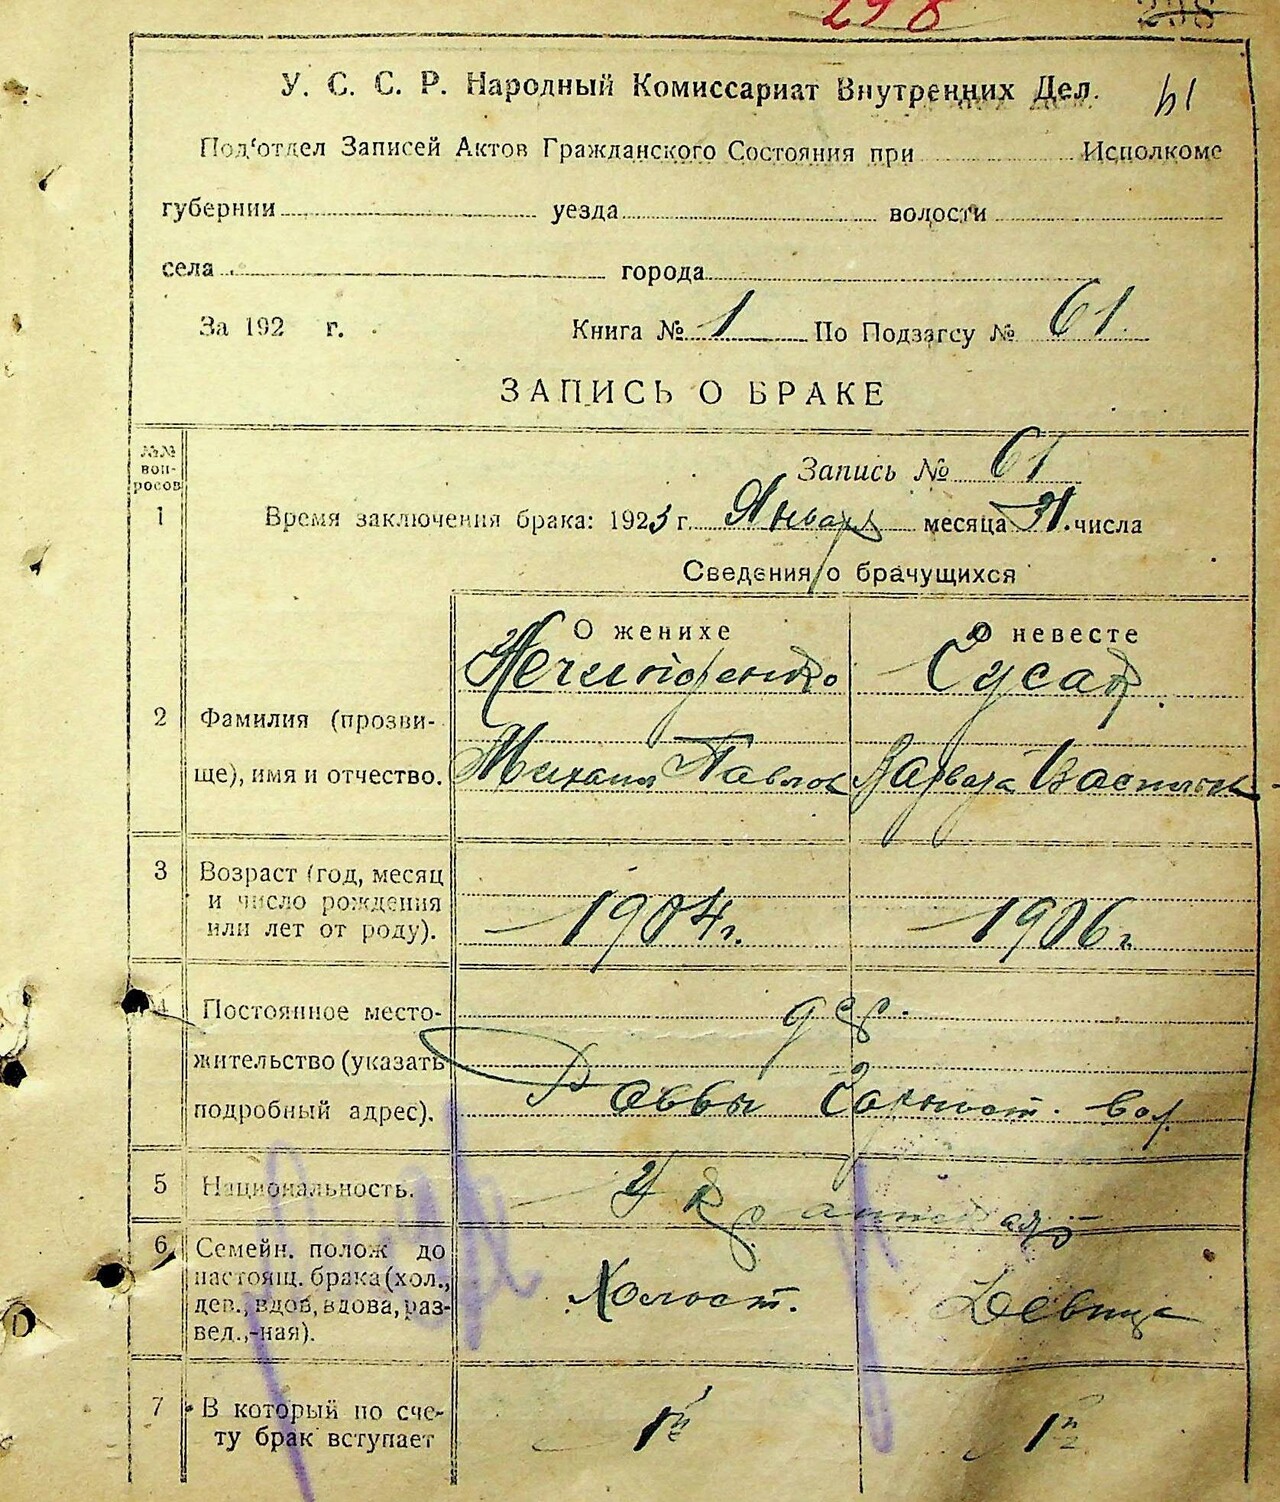 298
298
У. С. С. Р. Народный Комиссариат Внутренних Дел.
61
Под‘отдел Записей Актов Гражданского Состояния при Исполкоме
губернии уезда волости
села города
За 192 г. Книга № 1 По Подзагсу № 61.
ЗАПИСЬ О БРАКЕ
№№ вопросов
Запись № 61
1 Время заключения брака: 1923 г. Январь месяца 31. числа
Сведения о брачущихся
О женихе О невесте
Нечипоренко
2 Фамилия (прозви-
ще), имя и отчество. Михаил Павлов Варвара Васильев
3 Возраст (год, месяц
и число рождения 1904 г. 1906 г.
или лет от роду).
4 Постоянное место- дер.
жительство (указать
подробный адрес). вол.
5 Национальность. Украинская
6 Семейн. полож до
настоящ. брака (хол., Холост. Девица
дев., вдов, вдова, раз-
вед.,-ная).
7 В который по сче-
ту брак вступает 1й 1й